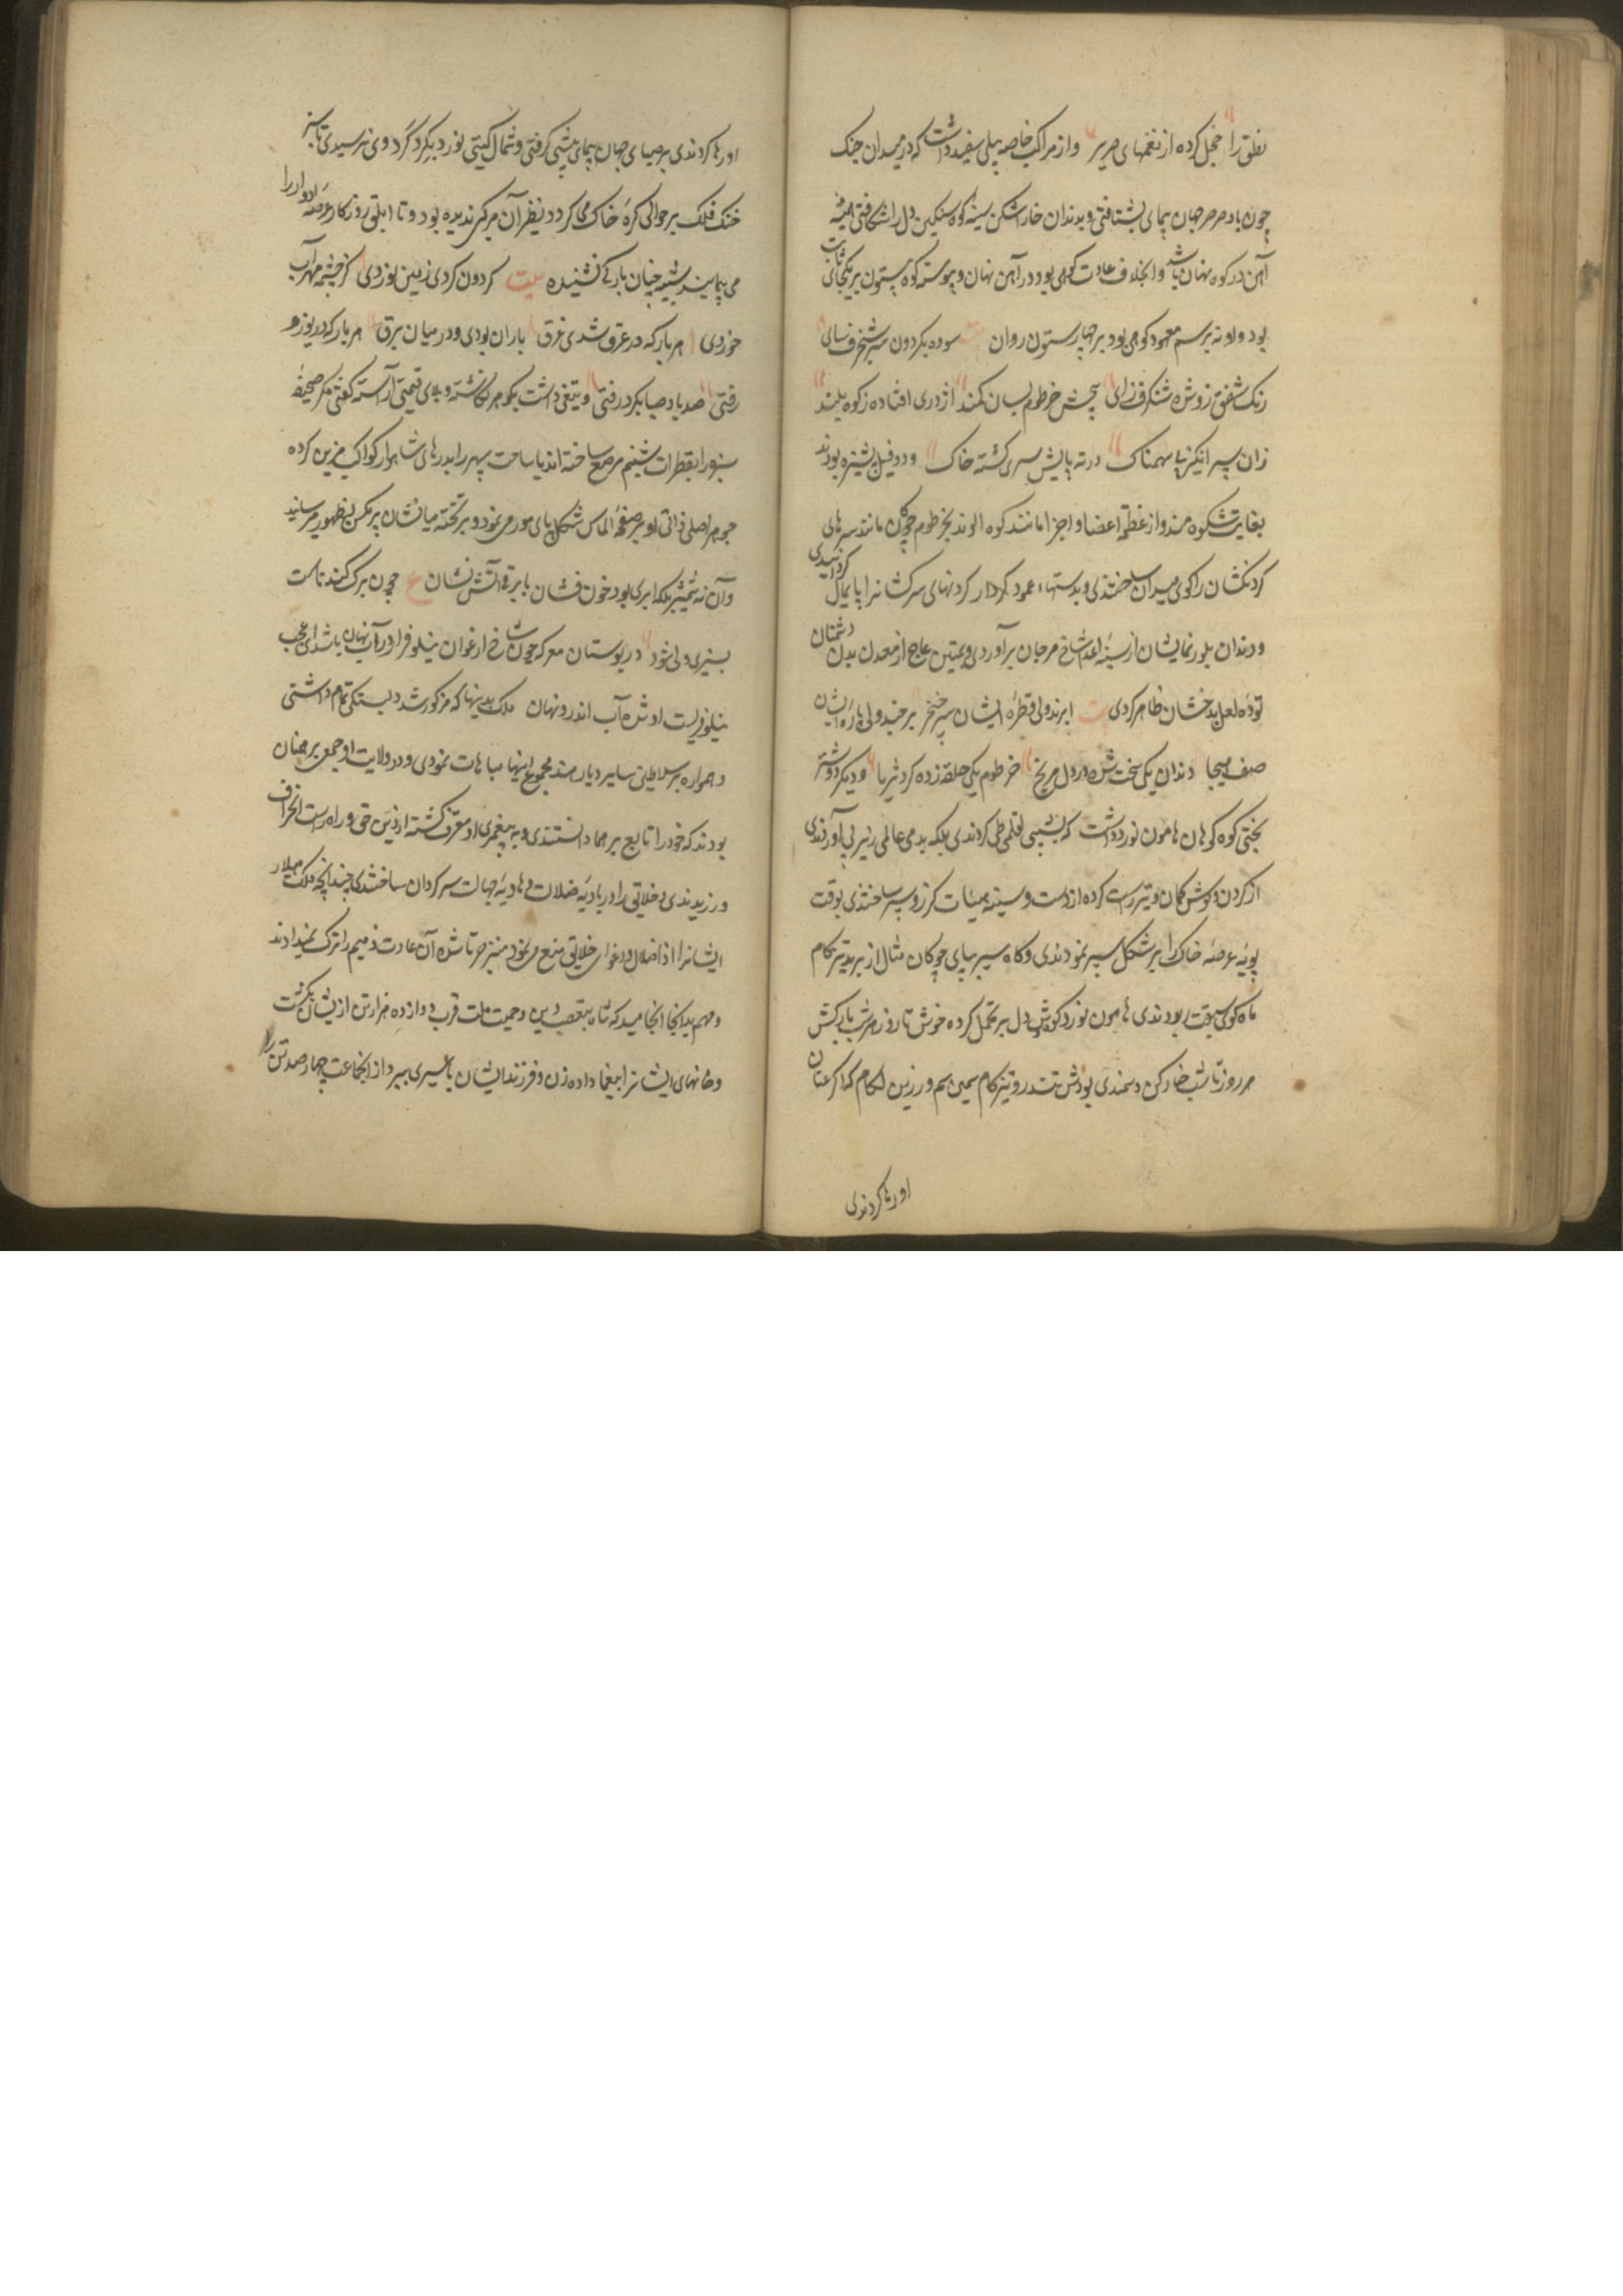 نطق را خجل کرده از نغمهای صریر و از مراکب خاصه پیلی سفید داشت که در میدان جنک
چون باد صرصر جهان پیمای بشتافتی و بدندان خاراشکن سینه کوه سنکین دل را شکافتی همیشه
آهن در کوه نهان باشد و او بخلاف عادت کوهی بود در آهن نهان و پیوسته کوه بیستون بر یکجای ثابت
بود و او نه برسم معهود کوهی بود بر چهار ستون روان سوده بکردون سر شنجرف سای
رنک شفق زو شده شنکرف زای پیچش خرطوم بسان کمند اژدری افتاده ز کوه بلند
زان سپر انکیز پی سهمناک در ته پایش سری کشته خاک و دو فیل بودند
بغایت شکوه مند و از عظم اعضا و اجزا مانند کوه الوند بخرطوم چوکان مانند سرهای
کردنکشان را کوی میدان ساختندی و بدستهاء عمود کردار کردنهای سرکشانرا پایمال کردانیدی
و دندان بلور نمایشان از سینه اعدا شاخ مرجان برآوردی و بمیتین عاج از معدن بدن دشمنان
توده لعل بدخشان ظاهر کردی ابرند ولی قطره ایشان سر خنجر برجند ولی باره ایشان
صف هیجا دندان یکی سخت شده در دل مریخ خرطوم یکی حلقه زده کرد ثریا و دیکر دو شتر
بختی کوه کوهان هامون نورد داشت که بشبی اقلیمی طی کردندی بلکه بدمی عالمی زیر پی آوردندی
از کردن و کوش کمان و تیر راست کرده از دست و سینه بهیئات کرز و سپر ساختندی بوقت
پویه عرصه خاک را بر شکل سپر نمودندی و کاه سیر بپای چوکان مثال از برید تیز کام
ماه کوی سبقت ربودندی هامون نورد کوهش دل بر تحمل کرده خوش تا روز هر شب بارکش
هر روز تا شب خارکن و سمندی بودش تند رو تیز کام سیمین سم و زرین لکام که اکر عنان
او رها کردندی
او رها کردندی بر صبای جهان پیمای پیشی کرفتی و شمال کیتی نورد بکرد کرد وی نرسیدی تا سبز
خنک فلک بر حوالی کره خاک می کردد نظیر آن مرکبی ندیده بود و تا ابلق روزکار عرصه ادوار را
می پیماید شبیه چنان بارکی نشنیده بیت کردون کردی زمین نوردی کز چشمه مهر آب
خوردی هر بار که در عرق شدی غرق باران بودی و در میان برق هر بار که در
رفتی صد باد صبا بکرد رفتی و تیغی داشت بکوهر نکاشته و بلالی قیمتی آراسته کفتی مکر صحیفه
سبزه را بقطرات شبنم مرصع ساخته اند یا ساحت سپهر را بدرهای شاهوار کواکب مزین کرده
جوهر اصلی ذاتی او بر صفحه الماس شکل پای مور می نمود و بر تخته میناش پر مکس بظهور میرسانید
و آن نه شمشیر بلکه ابری بود خون فشان یا برقی آتش نشان ع چون برک کندناست
بسبزی ولی شود در بوستان معرکه چون شاخ ارغوان نیلوفر ار در آب نهان باشد ای عجب
نیلوفریست او شده آب اندرو نهان ملک بدینها که مذکور شد دلبستکی تمام داشتی
و همواره بر سلاطین سایر دیار هند بمجموع اینها مباهات نمودی و در ولایت او جمعی برهمنان
بودند که خود را تابع برهما دانستندی و به پیغمبری او معترف کشته از دین حق و راه راست انحراف
ورزیدندی و خلایق را در بادیه ضلالت و هاویه جهالت سرکردان ساختندی چندانچه ملک هیلار
ایشانرا از اضلال و اغوای خلایق منع می نمود منزجر ناشده آن عادت ذمیم را ترک نمیدادند
و مهم بدانجا انجامید که شاه بتعصب دین و حمیت ملت قرب دوازده هزار تن از ایشان بکشت
و خانهای ایشانرا بیغما داده زن و فرزند ایشان باسیری ببرد از انجماعت چهار صد تن را